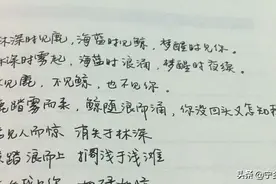 林深时见鹿，海蓝时见鲸，梦醒时见你。
林深时雾起，海蓝时浪涌，梦醒时夜续。
见鹿，不见鲸，也不见你。
鹿踏雾而来，鲸随浪而涌，你没回头又怎知我
见人而惊 消失于林深
踏浪而上 搁浅于浅滩
头条